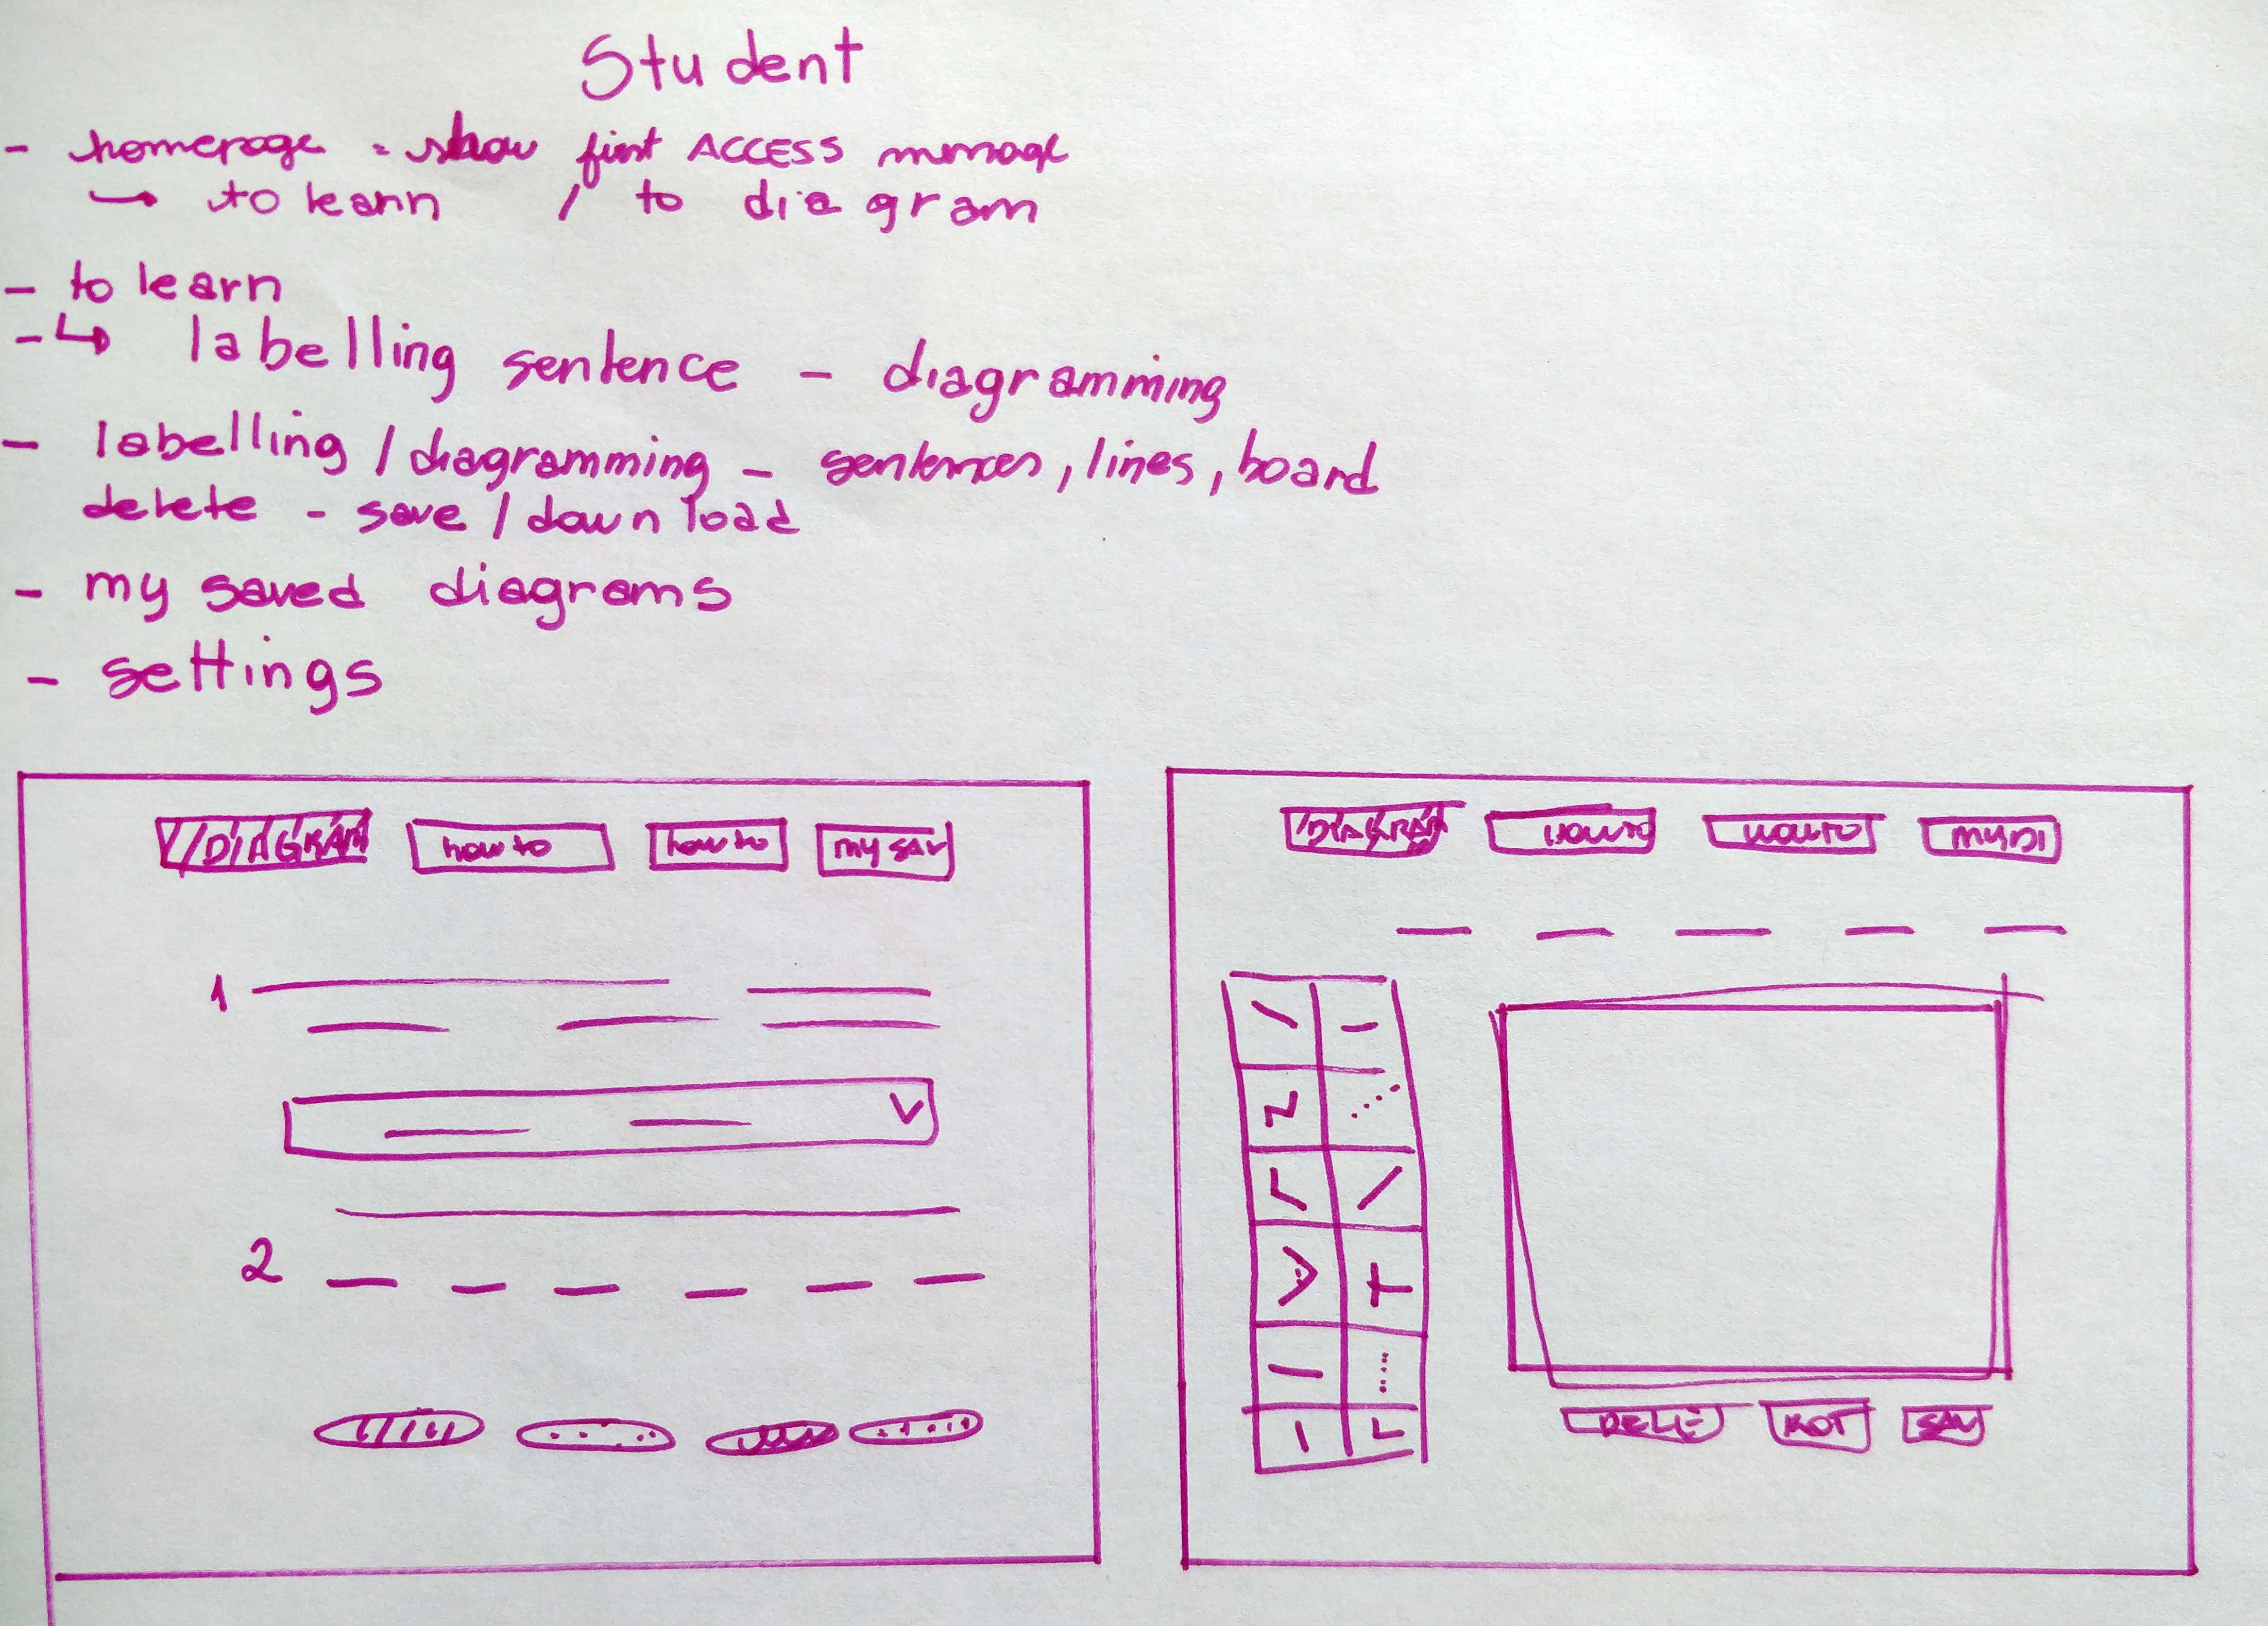 Student
- homepage = show first ACCESS message
→ to learn / to diagram
- to learn
- ↳ labelling sentence - diagramming
- labelling / diagramming - sentences, lines, board
delete - save / download
- my saved diagrams
- settings
DIAGRAM how to how to my sav
DIAGRAM HOW TO HOW TO MY DI
1
2
DELE ROT SAV